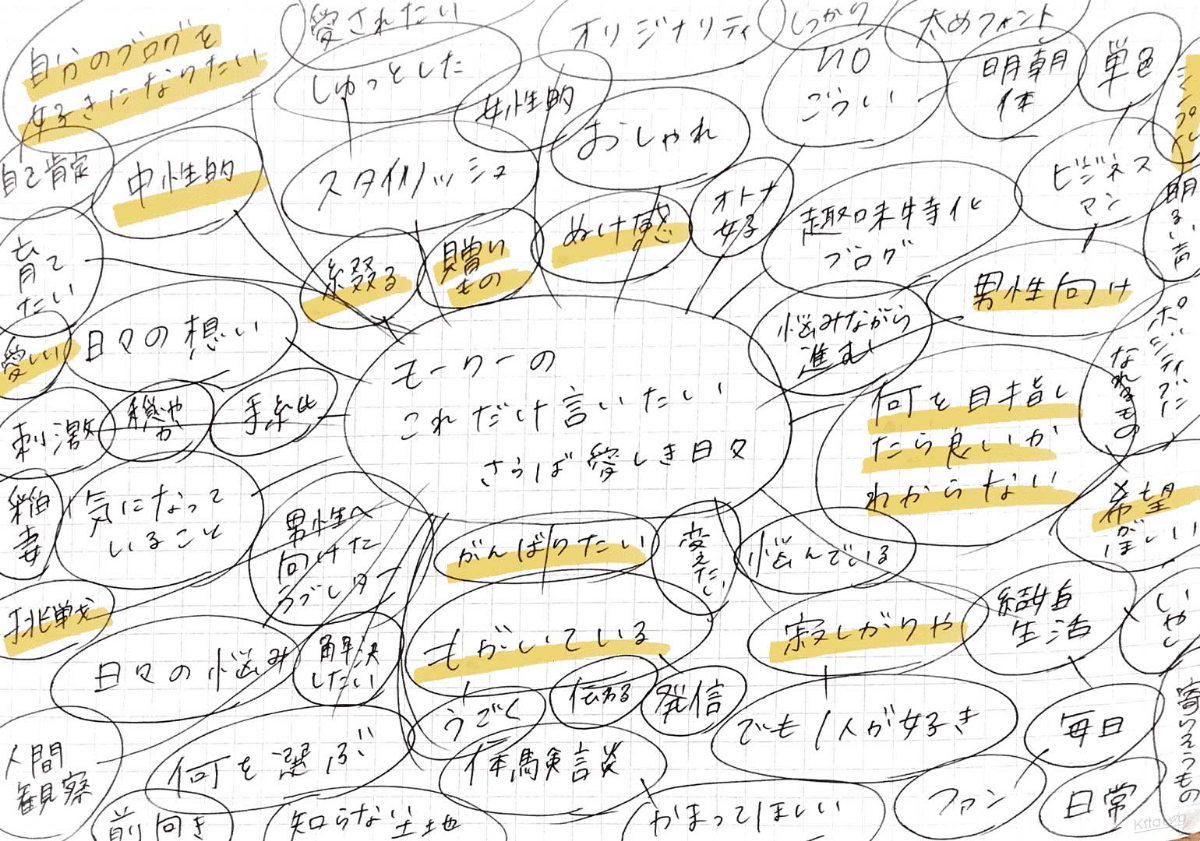 自分のブログを
好きになりたい
愛されたい
しゅっとした
女性的
オリジナリティ
しっかり
太めフォント
NO
ごうい
明朝
体
単色
シンプル
自己肯定
中性的
スタイリッシュ
おしゃれ
オトナ
女子
趣味特化
ブログ
ビジネス
マン
明るい声
育て
たい
綴る
贈り
もの
ぬけ感
男性向け
愛しい
日々の想い
悩みながら
進む
ポジティブに
なれるもの
モーリーの
これだけ言いたい
さらば愛しき日々
刺激
穏や
か
手紙
何を目指し
たら良いか
わからない
希望
がほしい
稲
妻
気になって
いること
男性へ
向けた
ラブレター
がんばりたい
変えたい
悩んでいる
挑戦
日々の悩み
解決
したい
もがいている
寂しがりや
結婚
生活
いやし
うごく
伝わる
発信
でも1人が好き
毎日
寄りそうもの
人間
観察
何を選ぶ
体験談
ファン
日常
前向き
知らない土地
かまってほしい